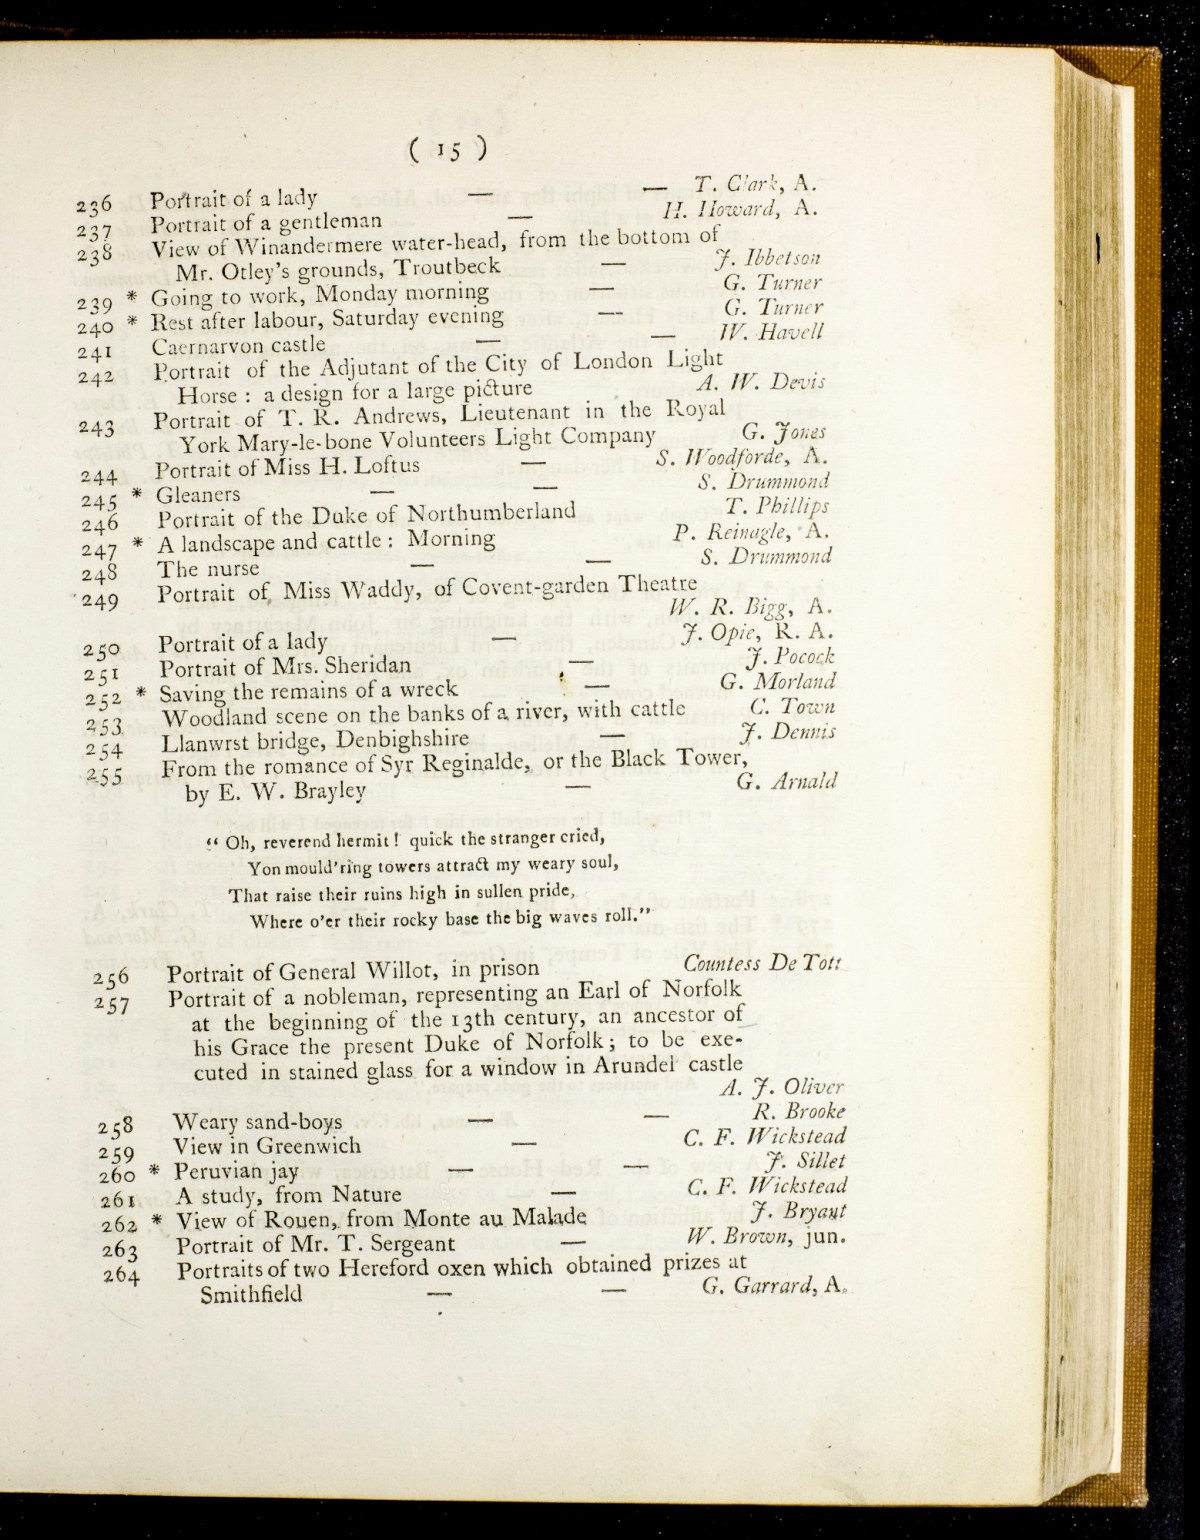 ( 15 )
236 Portrait of a lady — — T. Clark, A.
237 Portrait of a gentleman — H. Howard, A.
238 View of Winandermere water-head, from the bottom of
Mr. Otley's grounds, Troutbeck — J. Ibbetson
239 * Going to work, Monday morning — G. Turner
240 * Rest after labour, Saturday evening — G. Turner
241 Caernarvon castle — — W. Havell
242 Portrait of the Adjutant of the City of London Light
Horse : a design for a large picture A. W. Devis
243 Portrait of T. R. Andrews, Lieutenant in the Royal
York Mary-le-bone Volunteers Light Company G. Jones
244 Portrait of Miss H. Loftus — S. Woodforde, A.
245 * Gleaners — — S. Drummond
246 Portrait of the Duke of Northumberland T. Phillips
247 * A landscape and cattle : Morning P. Reinagle, A.
248 The nurse — — S. Drummond
249 Portrait of Miss Waddy, of Covent-garden Theatre
W. R. Bigg, A.
250 Portrait of a lady — J. Opie, R. A.
251 Portrait of Mrs. Sheridan — J. Pocock
252 * Saving the remains of a wreck — G. Morland
253 Woodland scene on the banks of a river, with cattle C. Town
254 Llanwrst bridge, Denbighshire — J. Dennis
255 From the romance of Syr Reginalde, or the Black Tower,
by E. W. Brayley — G. Arnald
“ Oh, reverend hermit ! quick the stranger cried,
Yon mould'ring towers attract my weary soul,
That raise their ruins high in sullen pride,
Where o'er their rocky base the big waves roll.”
256 Portrait of General Willot, in prison Countess De Tott
257 Portrait of a nobleman, representing an Earl of Norfolk
at the beginning of the 13th century, an ancestor of
his Grace the present Duke of Norfolk ; to be exe-
cuted in stained glass for a window in Arundel castle
A. J. Oliver
258 Weary sand-boys — — R. Brooke
259 View in Greenwich — C. F. Wickstead
260 * Peruvian jay — — J. Sillet
261 A study, from Nature — C. F. Wickstead
262 * View of Rouen, from Monte au Malade J. Bryant
263 Portrait of Mr. T. Sergeant — W. Brown, jun.
264 Portraits of two Hereford oxen which obtained prizes at
Smithfield — — G. Garrard, A.